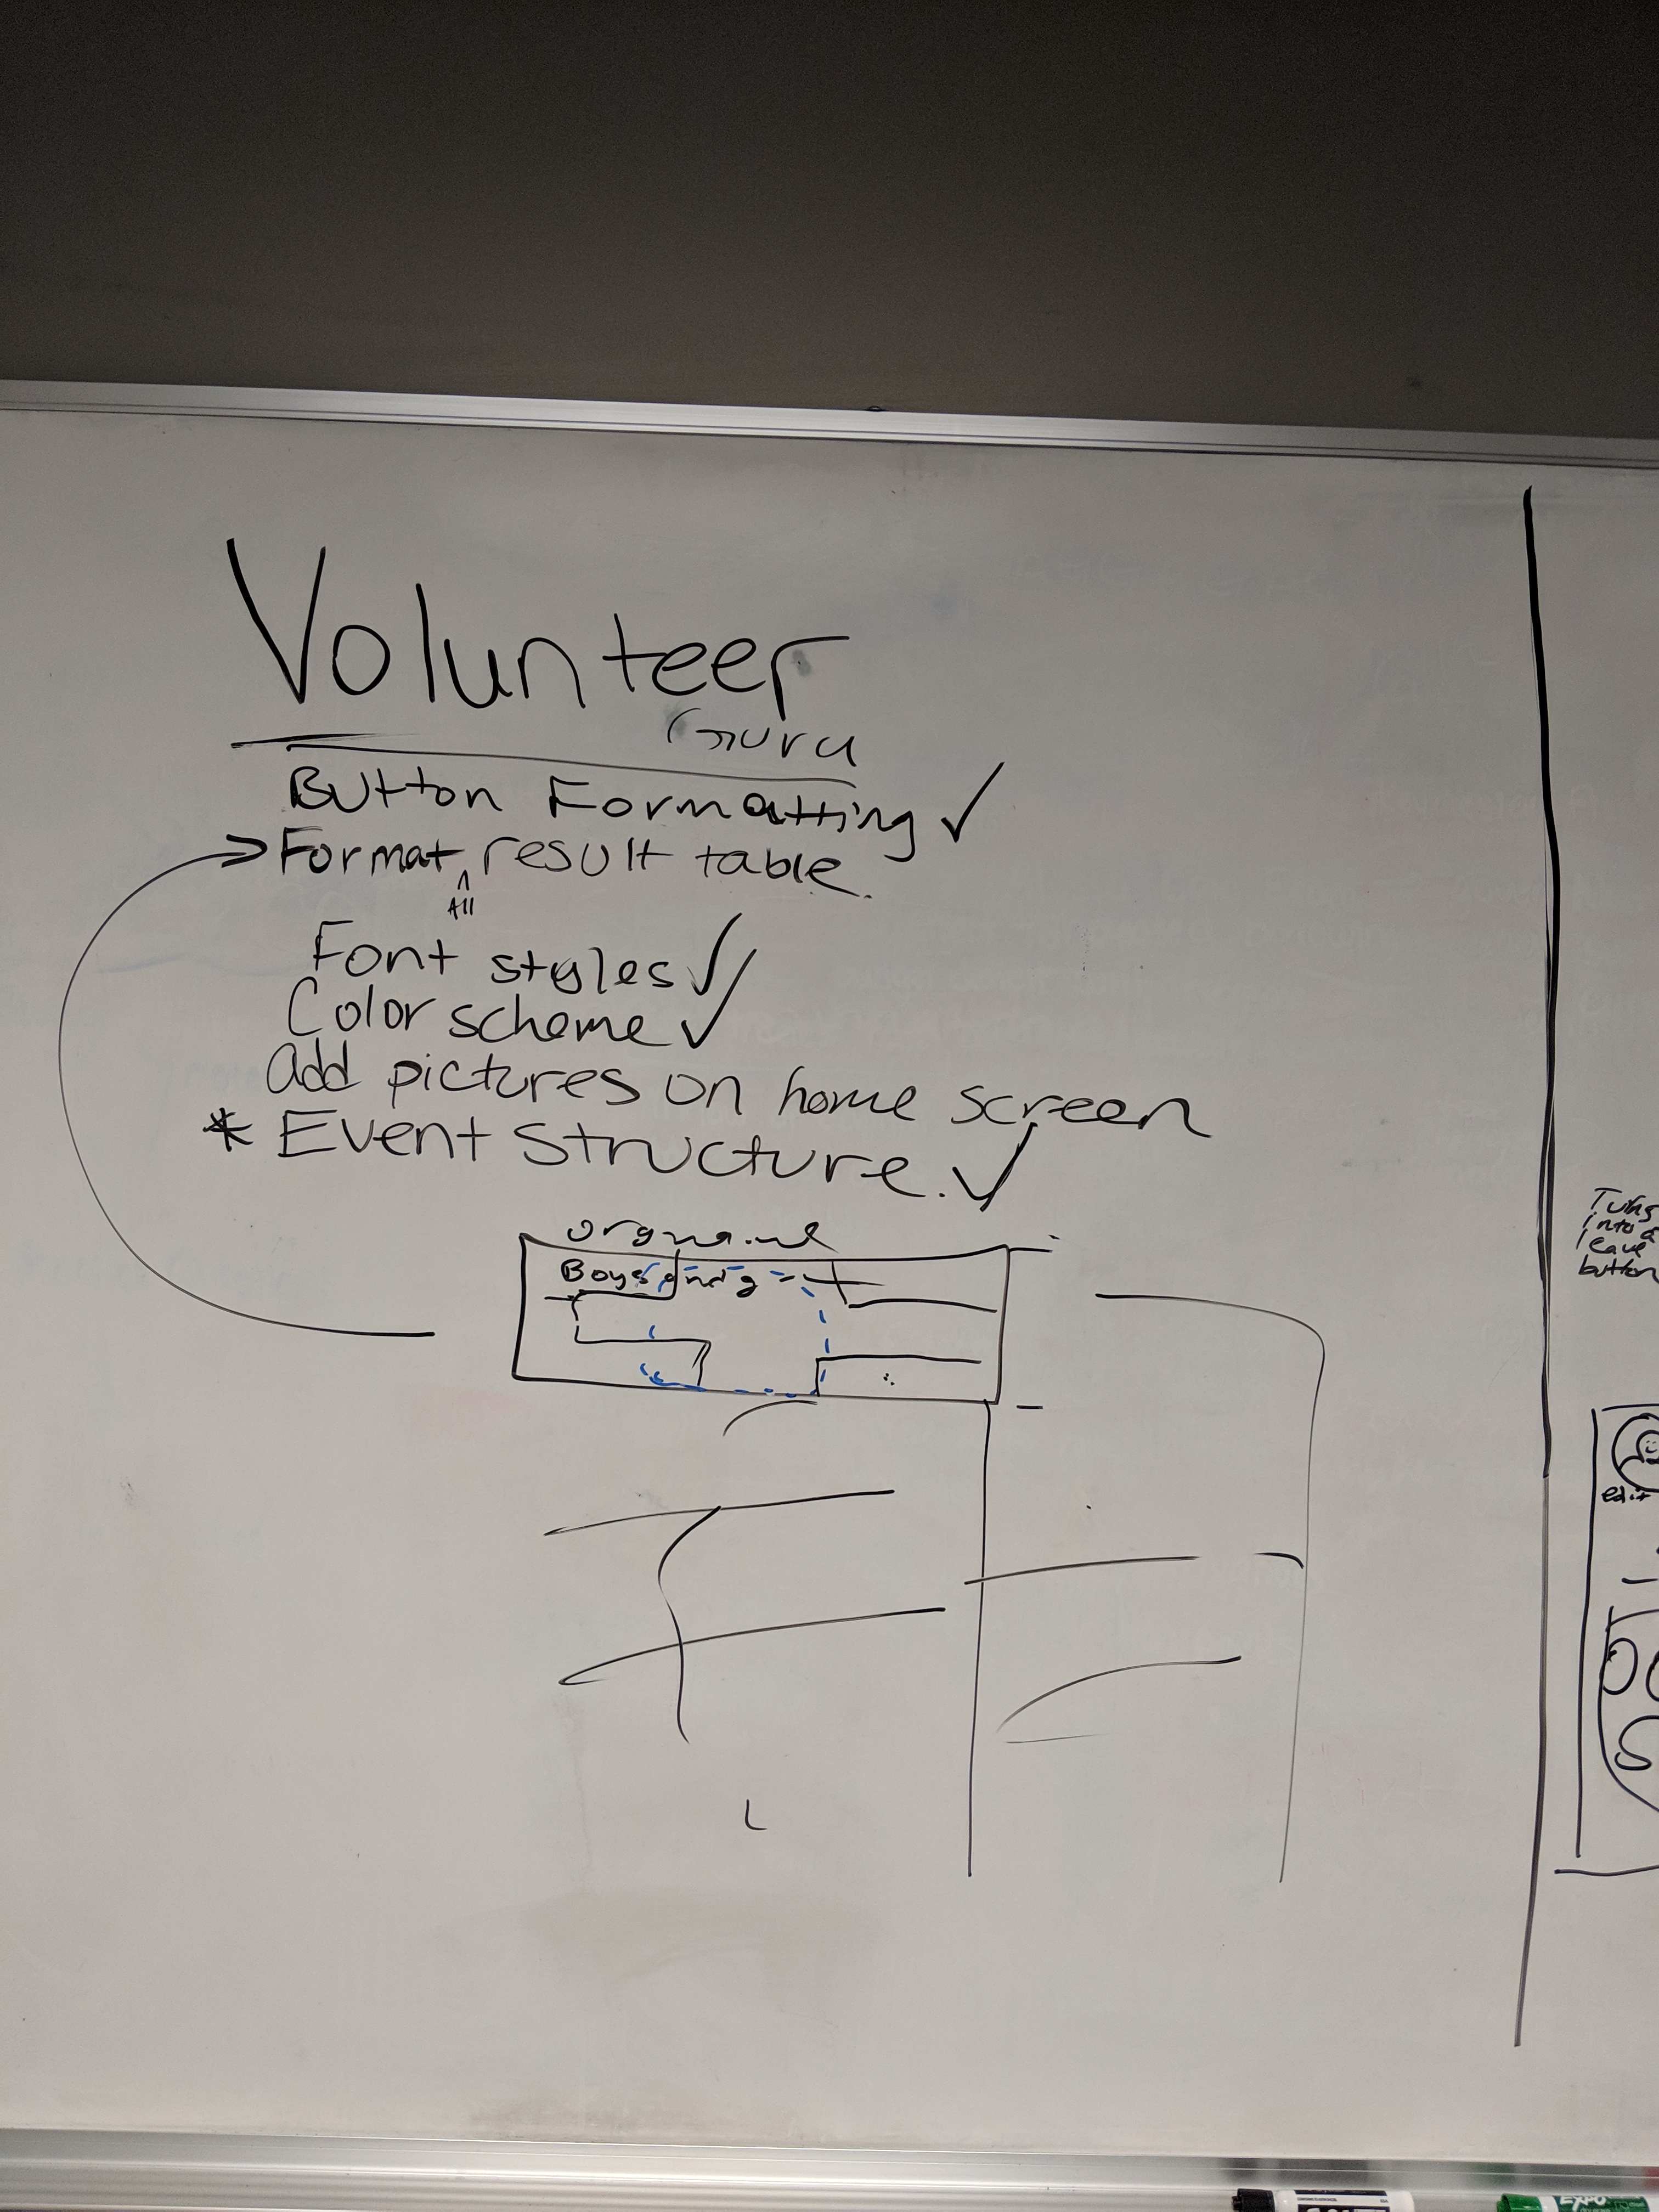 Volunteer
Guru
Button Formatting ✓
Format result table.
^
All
Font styles ✓
Color scheme ✓
Add pictures on home screen
* Event Structure. ✓
Boys
Turns
into a
leave
button
edit
EXPO